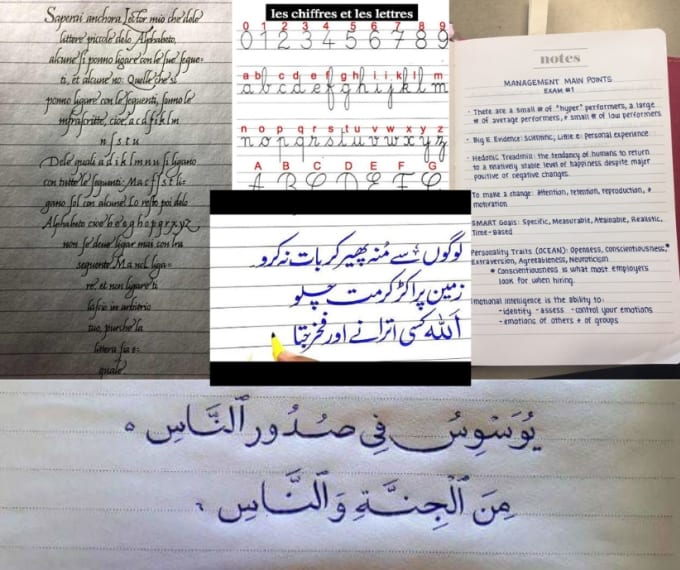 Saperai anchora Lettor mio che dele
littere piccole delo Alphabeto,
alcune si ponno ligare con le sue segue=
ti, et alcune no. Quelle che si
ponno ligare con le sequenti, sonno le
infrascritte, cioe, a c d f i k l m
n ſ s t u
Dele quali a d i k l m n u si ligano
con tutte le sequenti: Ma c f ſ s t li=
gano sol con alcune. Lo resto poi delo
Alphabeto cioe b e o g h p q r x y z
non se deue ligar mai con lra
sequente. Ma nel liga=
re, et non ligare ti
lasso in arbitrio
tuo, purche la
littera sia e=
quale
les chiffres et les lettres
0 1 2 3 4 5 6 7 8 9
0 1 2 3 4 5 6 7 8 9
a b c d e f g h i j k l m
a b c d e f g h i j k l m
n o p q r s t u v w x y z
n o p q r s t u v w x y z
A B C D E F G
A B C D E F G
notes
MANAGEMENT MAIN POINTS
EXAM #1
· There are a small # of "hyper" performers, a large
# of average performers, + small # of low performers
· Big E Evidence: Scientific, Little e: Personal experience
· Hedonic Treadmill: the tendency of humans to return
to a relatively stable level of happiness despite major
positive or negative changes.
To make a change: attention, retention, reproduction, +
motivation
SMART Goals: Specific, Measurable, Attainable, Realistic,
Time-Based
Personality Traits (OCEAN): Openness, Conscientiousness,*
Extraversion, Agreeableness, Neuroticism
* Conscientiousness is what most employers
look for when hiring.
Emotional Intelligence is the ability to:
-identify -assess -control your emotions
-emotions of others + of groups
لوگوں سے مُنہ پھیر کر بات نہ کرو
زمین پر اکڑ کر مت چلو
اَللہ کسی اترانے اور فخر جتا
يُوَسْوِسُ فِي صُدُورِ ٱلنَّاسِ ٥
مِنَ ٱلْجِنَّةِ وَٱلنَّاسِ